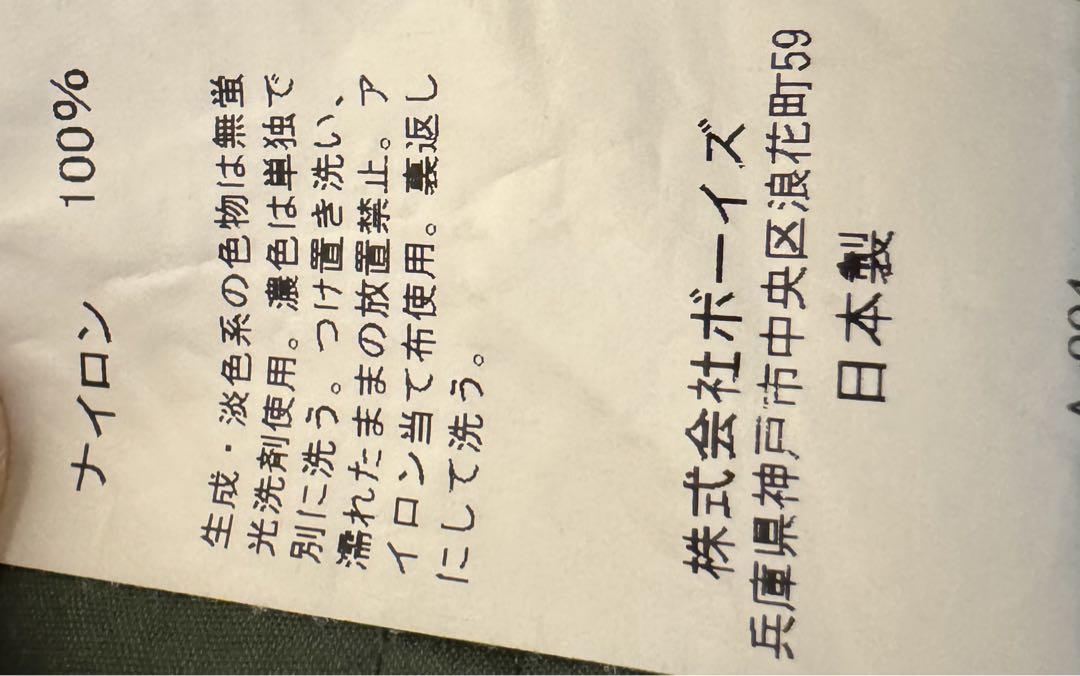 ナイロン 100%
生成・淡色系の色物は無蛍
光洗剤使用。濃色は単独で
別に洗う。つけ置き洗い、
濡れたままの放置禁止。ア
イロン当て布使用。裏返し
にして洗う。
株式会社ボーイズ
兵庫県神戸市中央区浪花町59
日本製